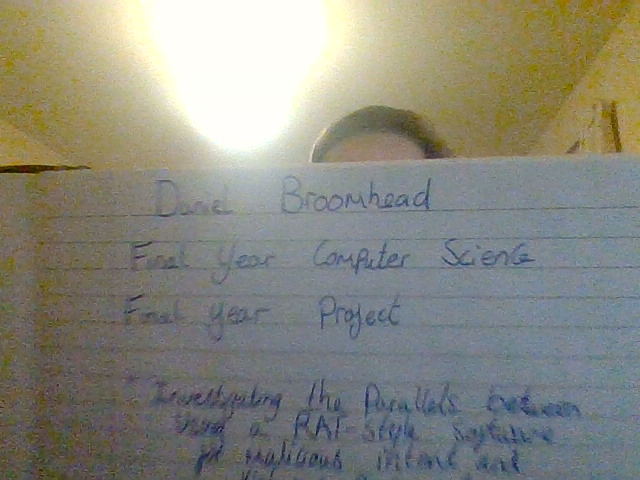 Daniel Broomhead
Final Year Computer Science
Final Year Project
"Investigating the Parallels between
Using a RAT-Style Software
for malicious intent and